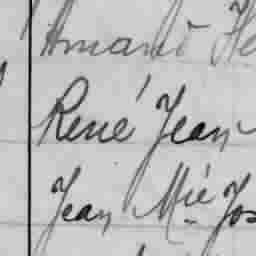 Amand He
René Jean
Jean Mié Jos